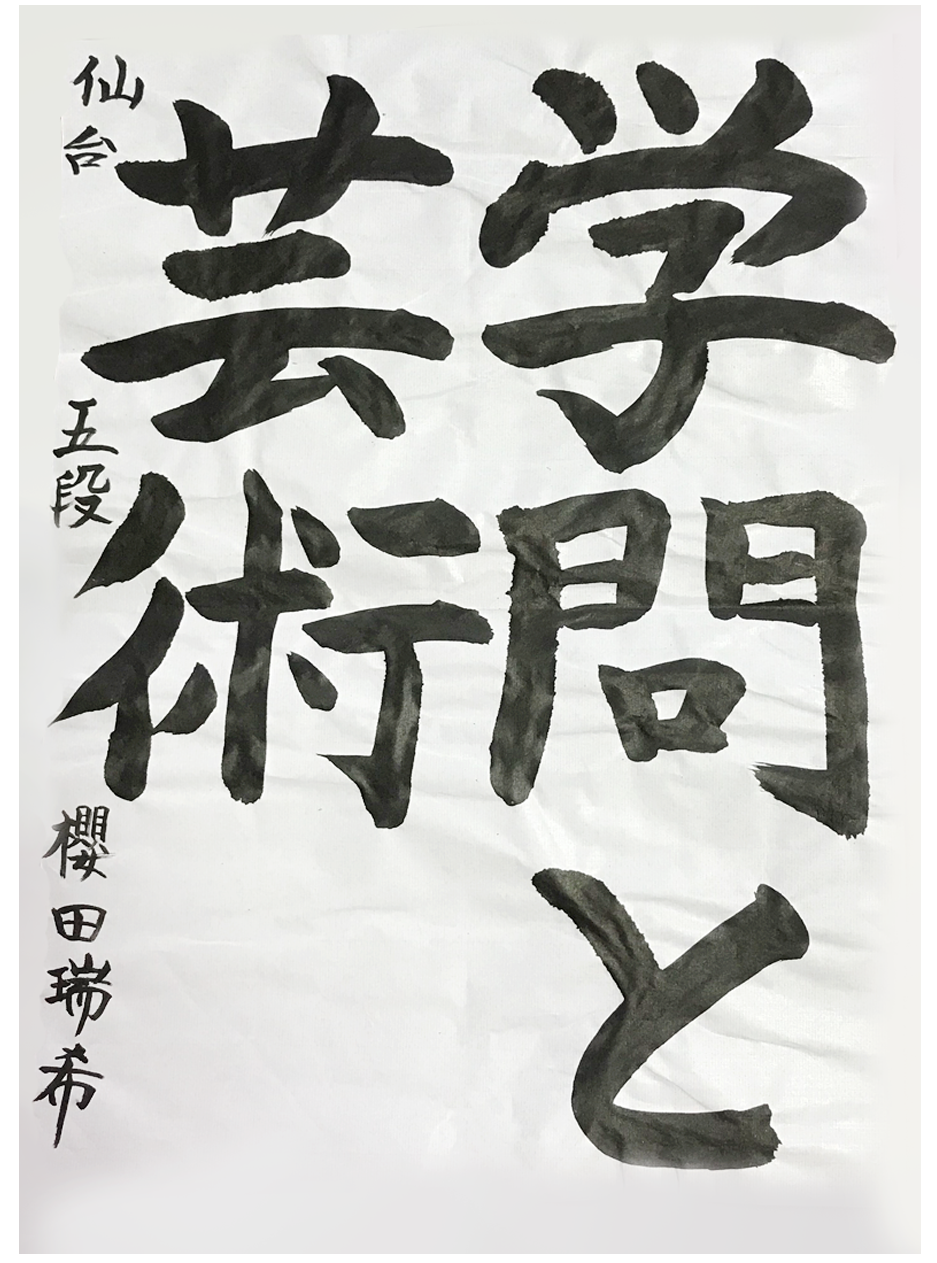 学問と
芸術
仙台 五段 櫻田瑞希